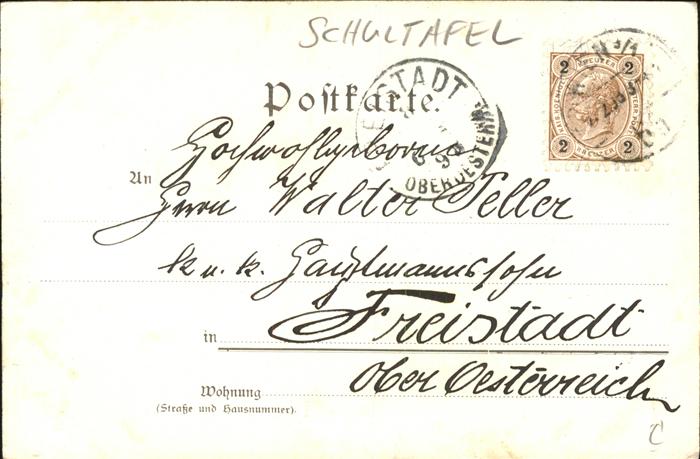 SCHULTAFEL
2 KREUZER 2
2 KREUZER 2
STADT
OBEROESTERR
Postkarte.
Hochwohlgeboren
An
Herrn Walter Teller
k. u. k. Hauptmannssohn
in Freistadt
Wohnung
Ober Oesterreich
(Straße und Hausnummer).
C